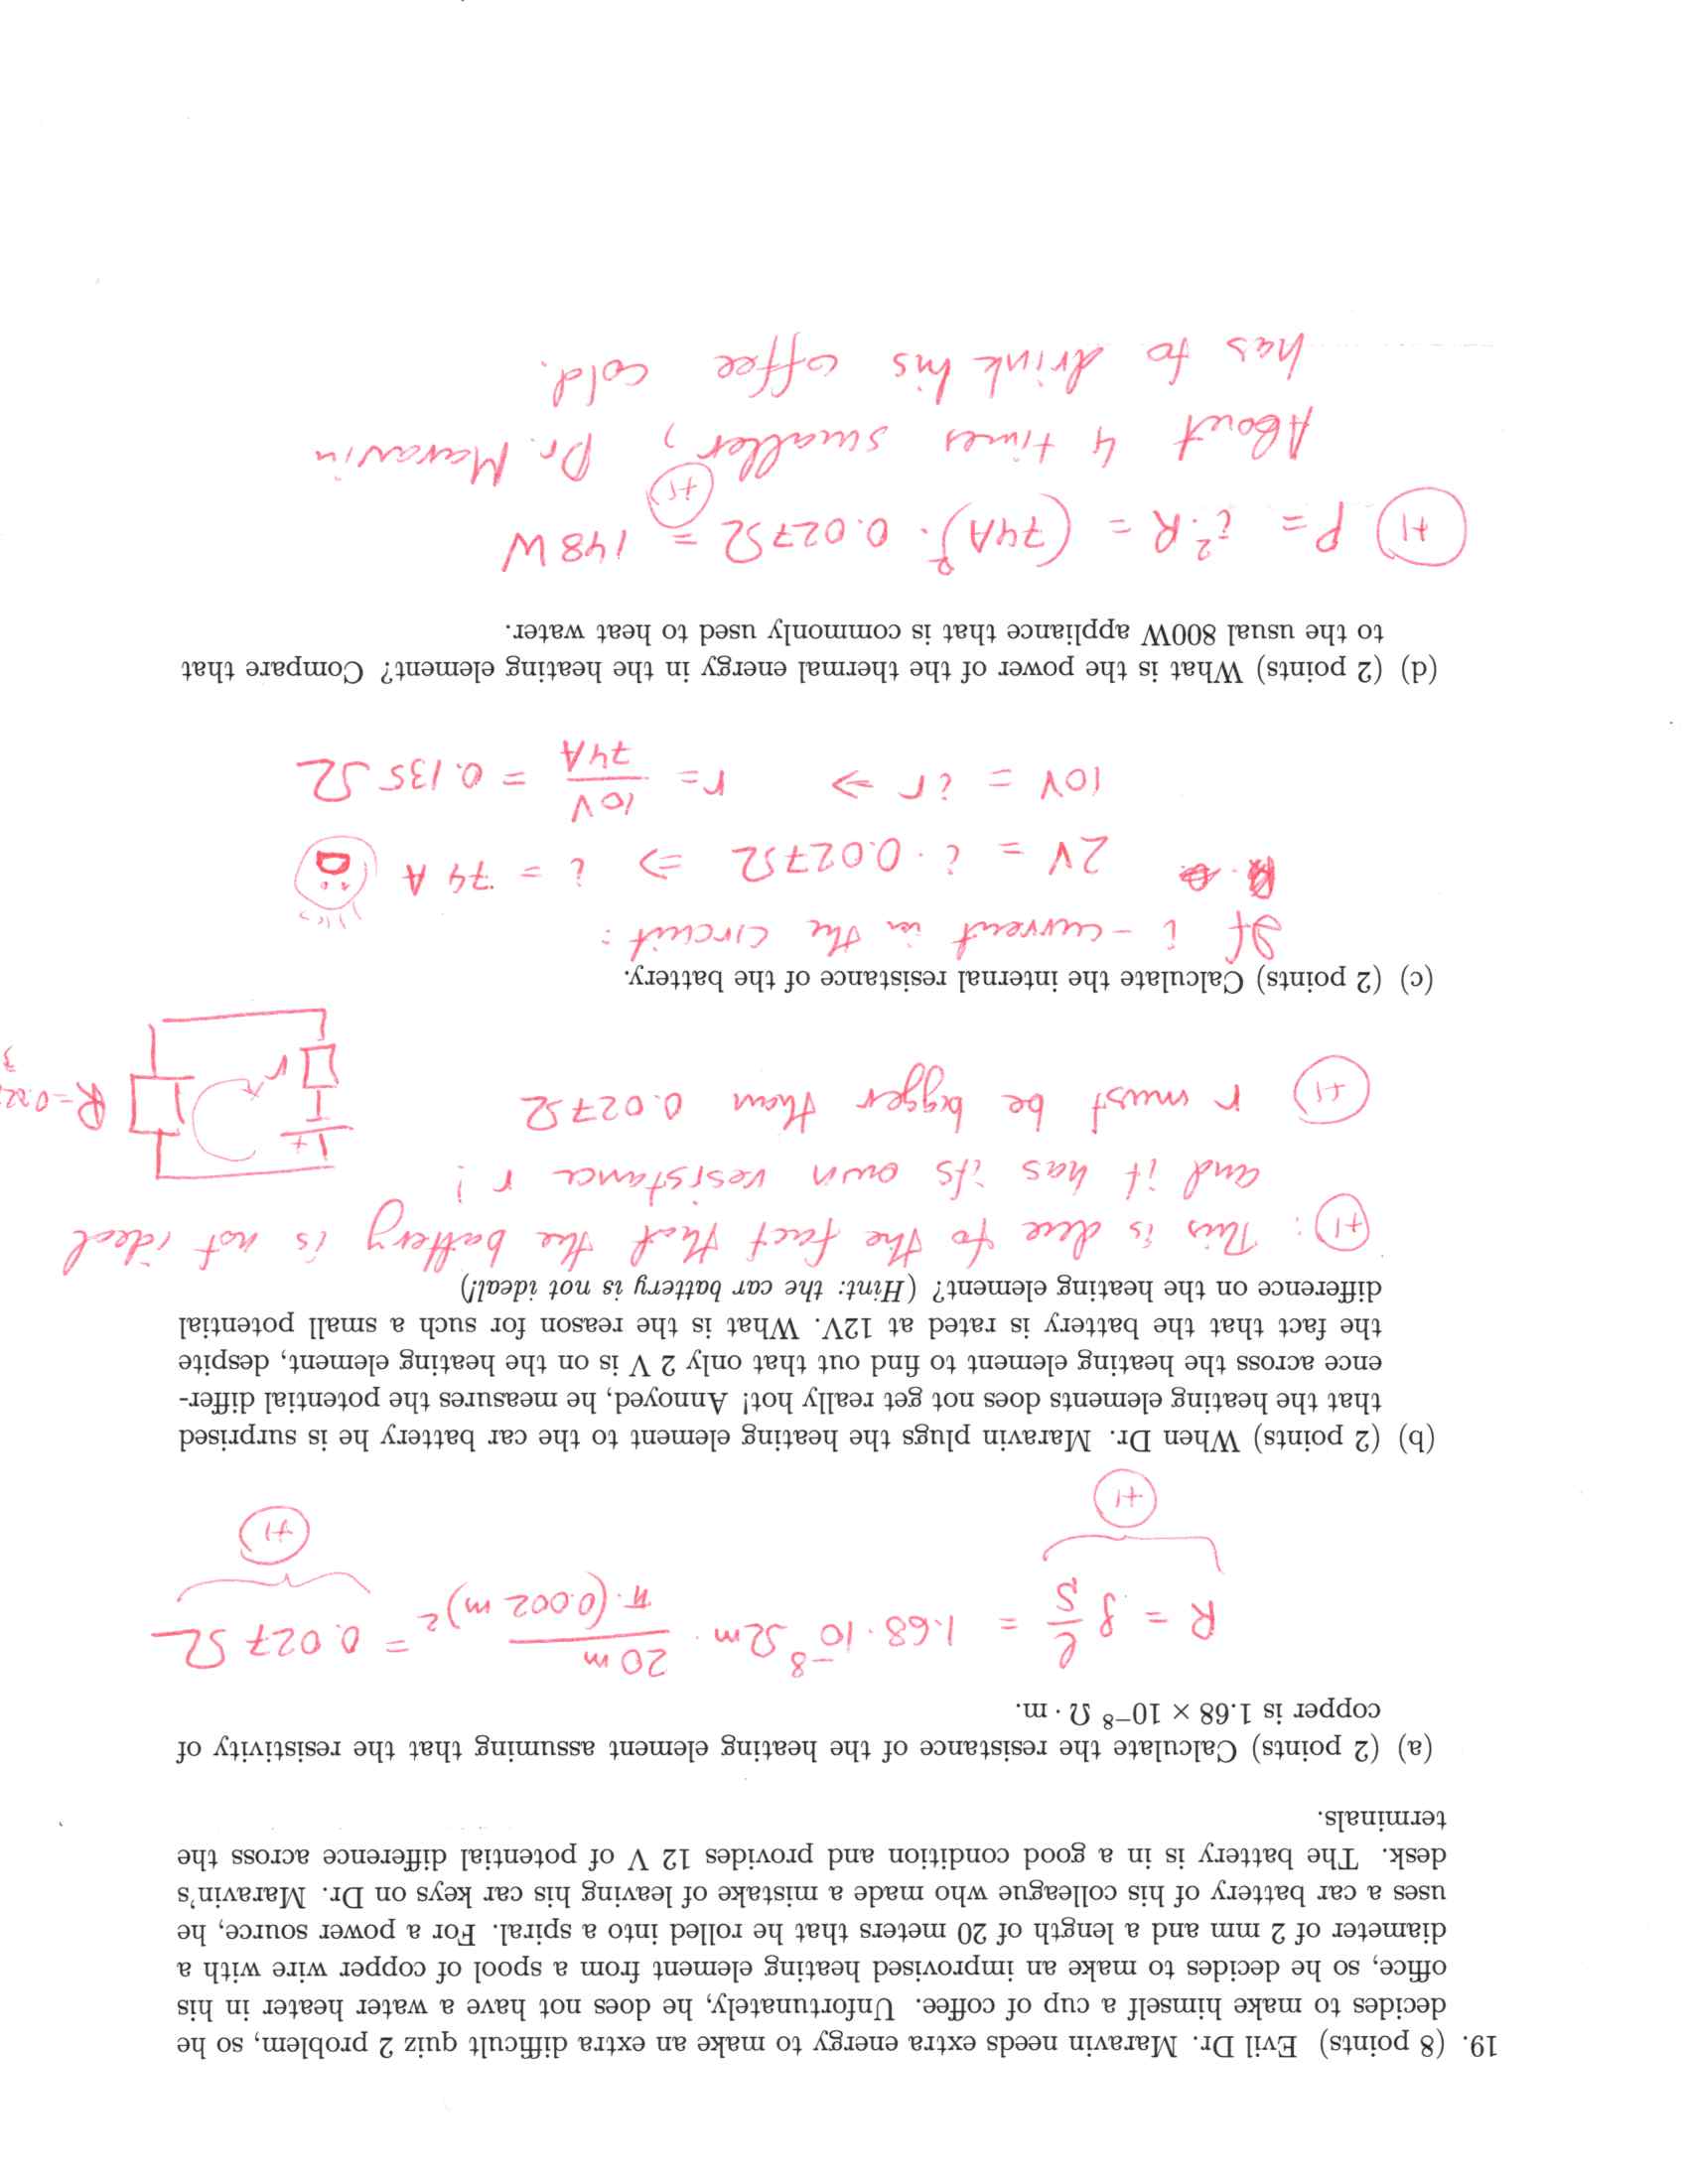 19. (8 points) Evil Dr. Maravin needs extra energy to make an extra difficult quiz 2 problem, so he
decides to make himself a cup of coffee. Unfortunately, he does not have a water heater in his
office, so he decides to make an improvised heating element from a spool of copper wire with a
diameter of 2 mm and a length of 20 meters that he rolled into a spiral. For a power source, he
uses a car battery of his colleague who made a mistake of leaving his car keys on Dr. Maravin's
desk. The battery is in a good condition and provides 12 V of potential difference across the
terminals.
(a) (2 points) Calculate the resistance of the heating element assuming that the resistivity of
copper is 1.68 × 10⁻⁸ Ω · m.
R = ρ l/S = 1.68 · 10⁻⁸ Ωm · 20 m / π · (0.002 m)² = 0.027 Ω
+1
+1
(b) (2 points) When Dr. Maravin plugs the heating element to the car battery he is surprised
that the heating elements does not get really hot! Annoyed, he measures the potential differ-
ence across the heating element to find out that only 2 V is on the heating element, despite
the fact that the battery is rated at 12V. What is the reason for such a small potential
difference on the heating element? (Hint: the car battery is not ideal!)
+1 : This is due to the fact that the battery is not ideal
and it has its own resistance r !
+1 r must be bigger than 0.027Ω
+
r
R=0.02
(c) (2 points) Calculate the internal resistance of the battery.
If i - current in the circuit :
2V = i · 0.027Ω ⇒ i = 74 A
10V = i r ⇒ r = 10V / 74A = 0.135 Ω
(d) (2 points) What is the power of the thermal energy in the heating element? Compare that
to the usual 800W appliance that is commonly used to heat water.
+1 P = i²·R = (74A)² · 0.027Ω = 148 W
+1
About 4 times smaller, Dr. Maravin
has to drink his coffee cold.